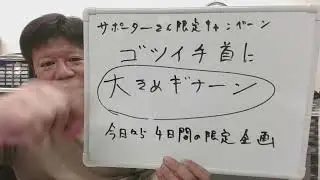 サポーターさん限定キャンペーン
ゴツイ手首に
大きめギナーン
今日から4日間の限定企画